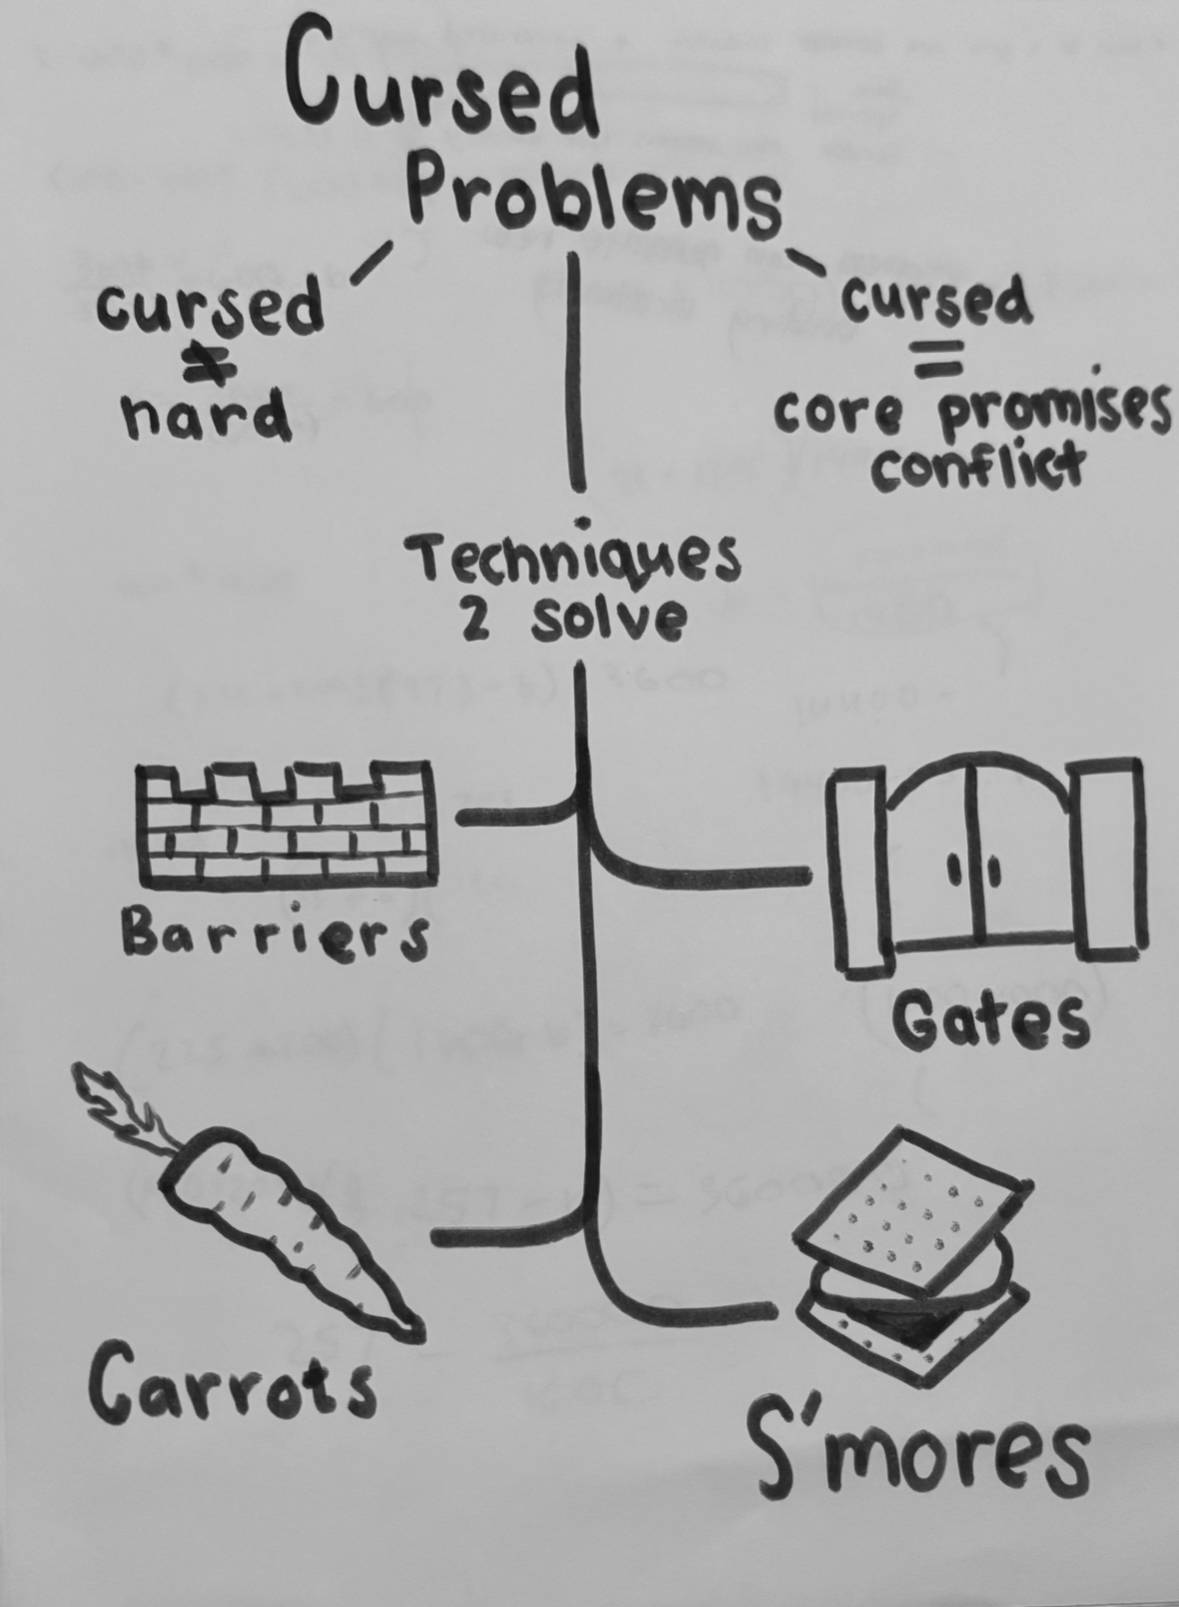 Cursed
Problems
cursed
≠
hard
cursed
=
core promises
conflict
Techniques
2 solve
Barriers
Gates
Carrots
S'mores